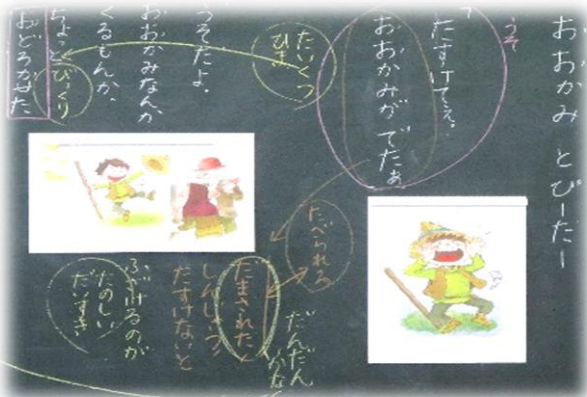 おおかみ とピーター
うそ
「たすけてえ。
おおかみが でたぁ
たいくつ
ひま
うそだよ。
おおかみなんか
くるもんか。
ちょっとびっくり
おどろかせた
たべられる
だんだん
だまされた
しんじゃう!
たすけないと
ふざけるのが
たのしい
だいすき